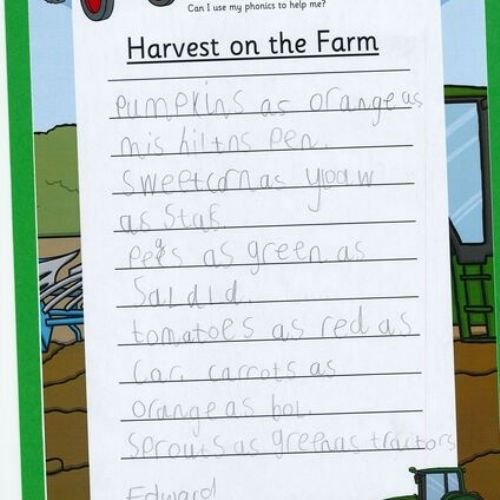 Can I use my phonics to help me?
Harvest on the Farm
Pumpkins as orange as
mis hiltns Pen.
Sweetcorn as yoaw
as Stas.
Pees as green as
Saldid.
tomatoes as red as
Car. carrots as
orange as
Sprouts as green as tractors
Edward